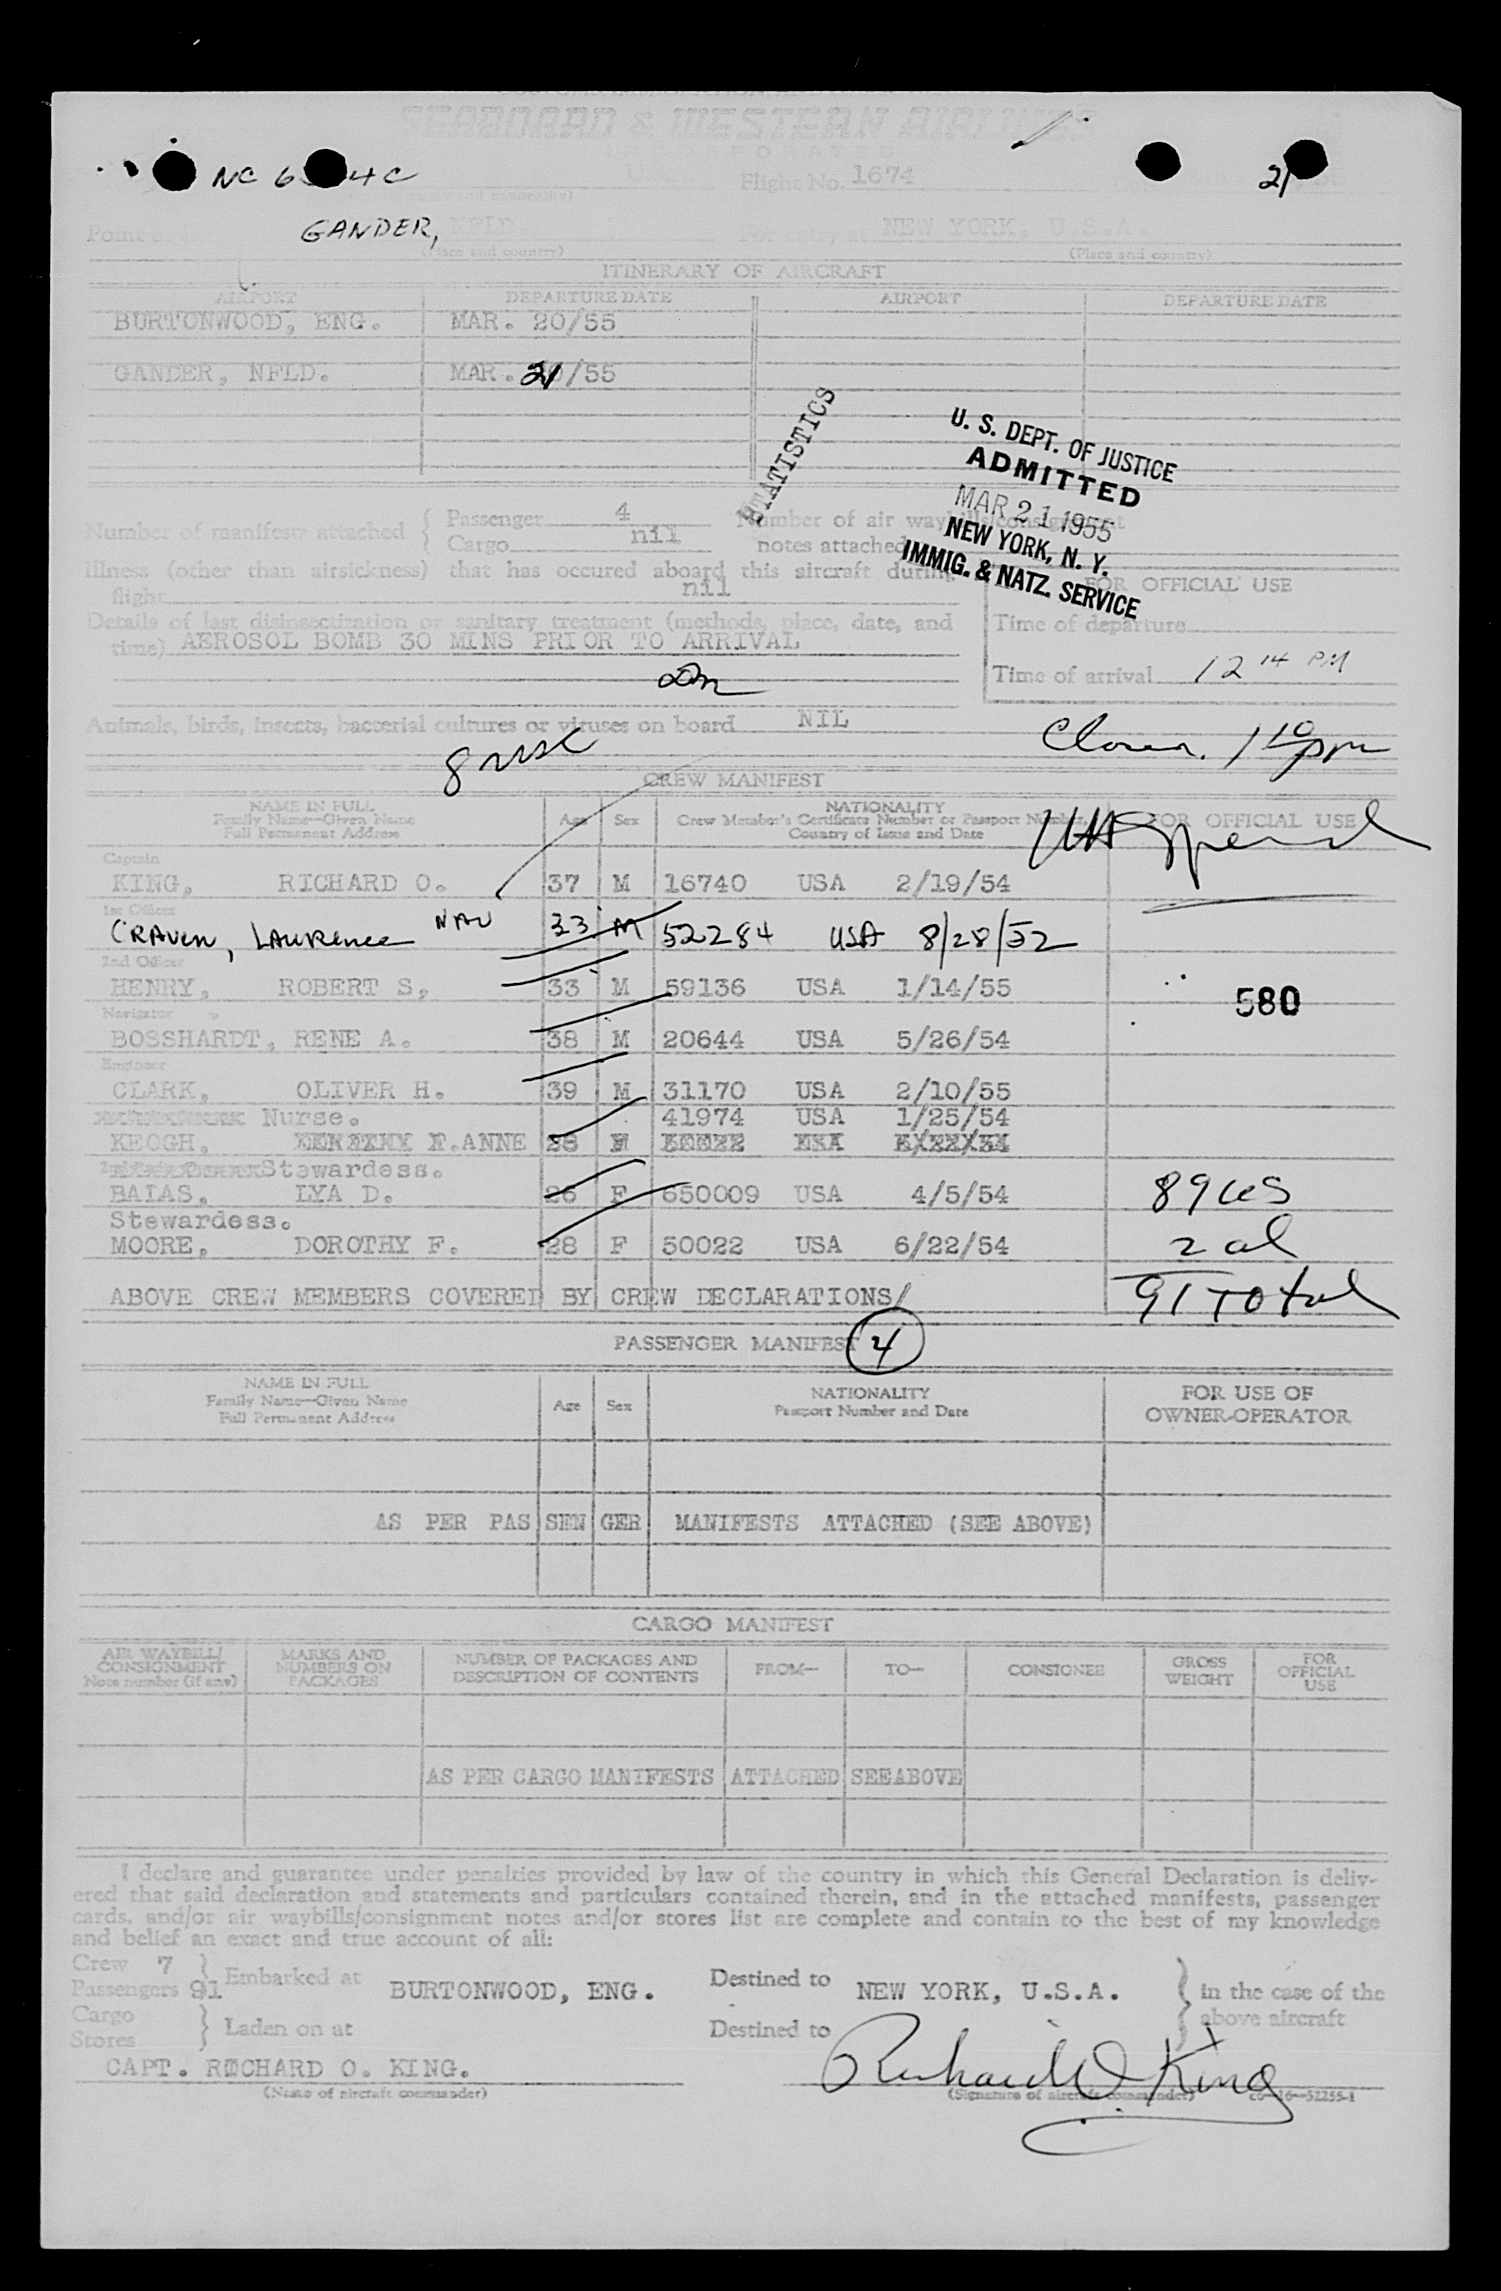 SEABOARD & WESTERN AIRLINES
INCORPORATED
NC 6 4C Flight No. 1674 21
GANDER, NEW YORK, U.S.A.
(Place and country) (Place and country)
ITINERARY OF AIRCRAFT
AIRPORT DEPARTURE DATE AIRPORT DEPARTURE DATE
BURTONWOOD, ENG. MAR. 20/55
GANDER, NFLD. MAR. 21/55
STATISTICS
U. S. DEPT. OF JUSTICE
ADMITTED
MAR 21 1955
NEW YORK, N. Y.
IMMIG. & NATZ. SERVICE
Number of manifests attached { Passenger 4 Number of air waybills/consignment
Cargo nil notes attached
Illness (other than airsickness) that has occured aboard this aircraft during
flight nil
FOR OFFICIAL USE
Details of last disinsectization or sanitary treatment (methods, place, date, and
time) AEROSOL BOMB 30 MINS PRIOR TO ARRIVAL
Time of departure
Time of arrival 12 14 PM
Animals, birds, insects, bacterial cultures or viruses on board NIL
8 usc
1 10 pm
CREW MANIFEST
NAME IN FULL
Family Name—Given Name
Full Permanent Address
Age Sex
NATIONALITY
Crew Member's Certificate Number or Passport Number,
Country of Issue and Date
FOR OFFICIAL USE
Captain
KING, RICHARD O. 37 M 16740 USA 2/19/54
1st Officer
CRAVEN, LAWRENCE NAV 33 M 52284 USA 8/28/52
2nd Officer
HENRY, ROBERT S, 33 M 59136 USA 1/14/55
580
Navigator
BOSSHARDT, RENE A. 38 M 20644 USA 5/26/54
Engineer
CLARK, OLIVER H. 39 M 31170 USA 2/10/55
Nurse. 41974 USA 1/25/54
KEOGH. F.ANNE 28 F
Stewardess.
BAIAS. LYA D. 26 F 650009 USA 4/5/54
89 US
Stewardess.
MOORE, DOROTHY F. 28 F 50022 USA 6/22/54
2 al
ABOVE CREW MEMBERS COVERED BY CREW DECLARATIONS/
91 Total
PASSENGER MANIFEST 4
NAME IN FULL
Family Name—Given Name
Full Permanent Address
Age Sex
NATIONALITY
Passport Number and Date
FOR USE OF
OWNER-OPERATOR
AS PER PASSENGER MANIFESTS ATTACHED (SEE ABOVE)
CARGO MANIFEST
AIR WAYBILL/
CONSIGNMENT
Note number (if any)
MARKS AND
NUMBERS ON
PACKAGES
NUMBER OF PACKAGES AND
DESCRIPTION OF CONTENTS
FROM— TO— CONSIGNEE
GROSS
WEIGHT
FOR
OFFICIAL
USE
AS PER CARGO MANIFESTS ATTACHED SEEABOVE
I declare and guarantee under penalties provided by law of the country in which this General Declaration is deliv-
ered that said declaration and statements and particulars contained therein, and in the attached manifests, passenger
cards, and/or air waybills/consignment notes and/or stores list are complete and contain to the best of my knowledge
and belief an exact and true account of all:
Crew 7 } Embarked at BURTONWOOD, ENG. Destined to NEW YORK, U.S.A. } in the case of the
Passengers 91 above aircraft
Cargo } Laden on at Destined to
Stores
CAPT. RICHARD O. KING. Richard O King
(Name of aircraft commander) (Signature of aircraft commander) c6—16—52255-1